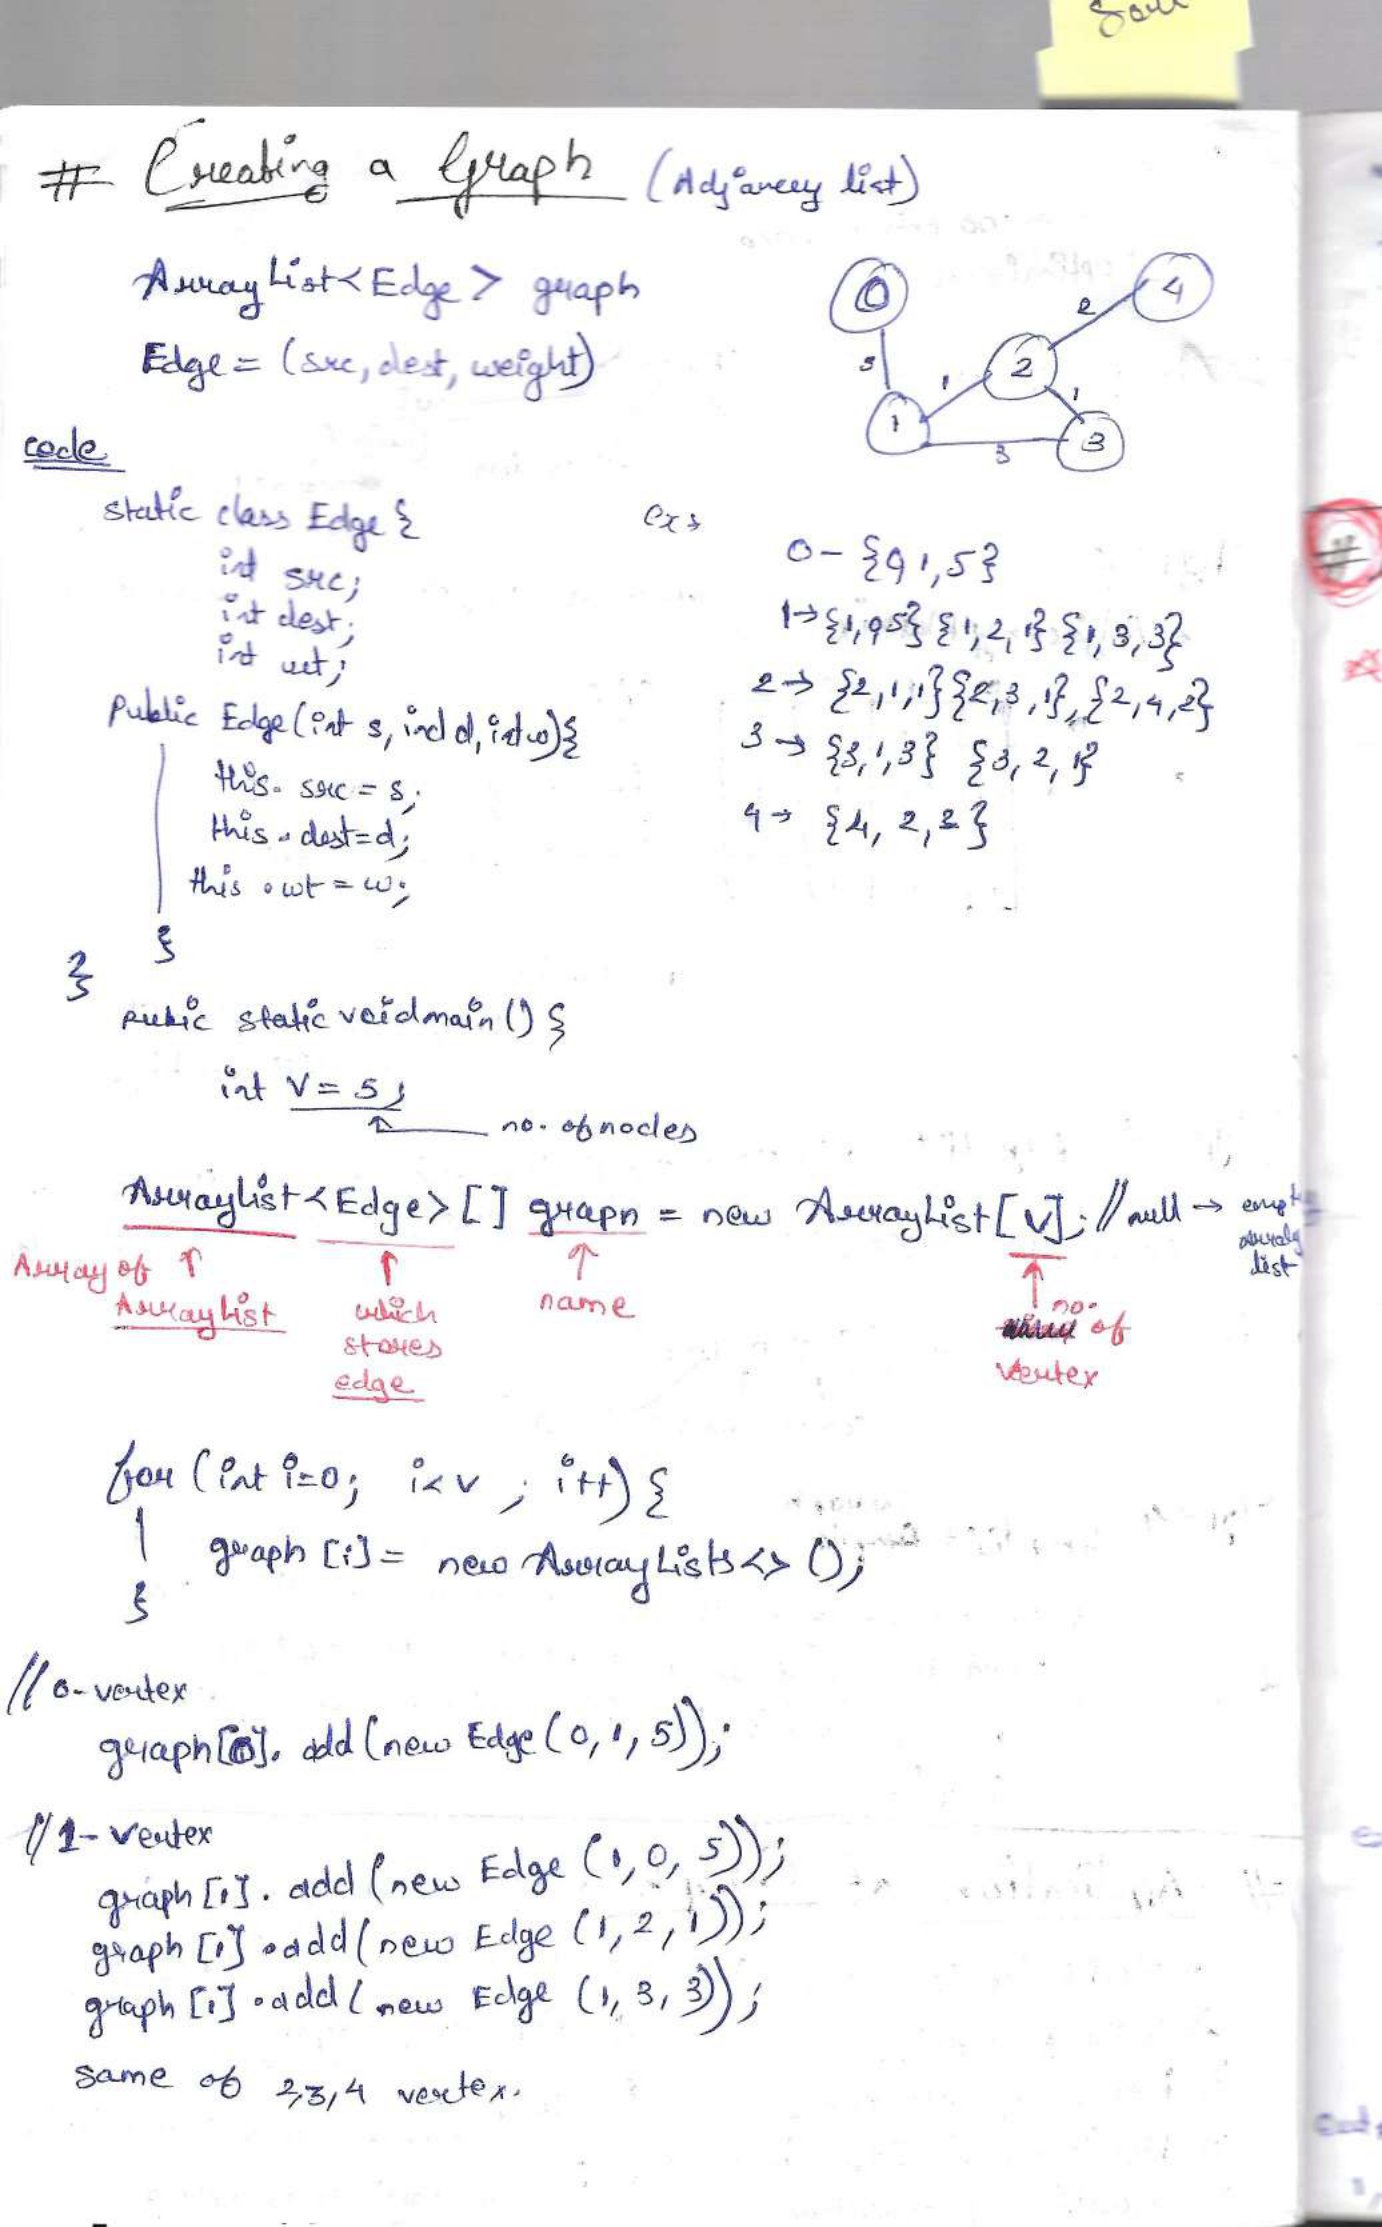 Sort
# Creating a Graph (Adjancey list)
ArrayList<Edge> graph
Edge = (src, dest, weight)
0
4
2
2
5
1
1
1
3
3
code
static class Edge {
int src;
int dest;
int wt;
Public Edge(int s, int d, int w){
this. src = s;
this. dest=d;
this. wt = w;
}
}
ex:
0 - {0,1,5}
1→{1,0,5} {1,2,1} {1,3,3}
2→ {2,1,1}{2,3,1},{2,4,2}
3→ {3,1,3} {3,2,1}
4→ {4, 2, 2}
public static void main () {
int V = 5;
no. of nodes
ArrayList<Edge>[] graph = new ArrayList[V]; //null → empty
array
list
Array of
ArrayList
which
stores
edge
name
no. of
Vertex
for (int i=0; i<v ; i++) {
graph [i] = new ArrayLists<> ();
}
// 0-vertex
graph[0]. add (new Edge (0, 1, 5));
// 1- vertex
graph [1]. add (new Edge (1, 0, 5));
graph [1]. add (new Edge (1, 2, 1));
graph [1]. add (new Edge (1, 3, 3));
same of 2,3,4 vertex.
#